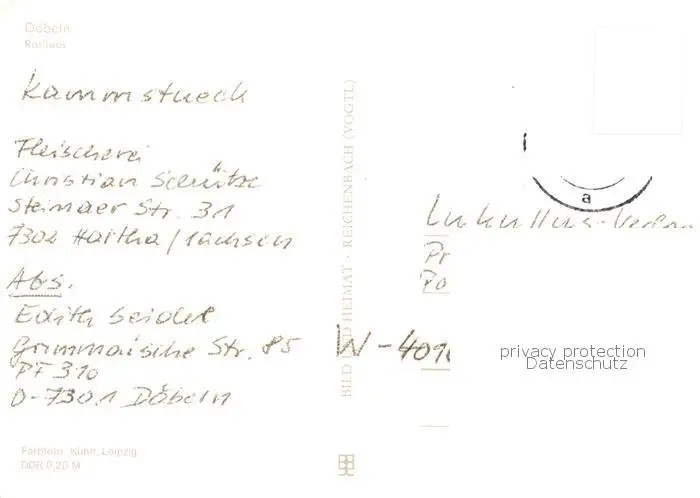 Döbeln
Rathaus
Kammstueck
Fleischerei
Christian Schütze
Steinaer Str. 31
7302 Hartha / Sachsen
Abs.
Edith Seidel
Grimmaische Str. 85
PF 310
O-7301 Döbeln
Farbfoto: Kühn, Leipzig
DDR 0,20 M
BILD UND HEIMAT · REICHENBACH (VOGTL)
a
Lukullus-Verlag
Pr
Po
W-40
privacy protection
Datenschutz